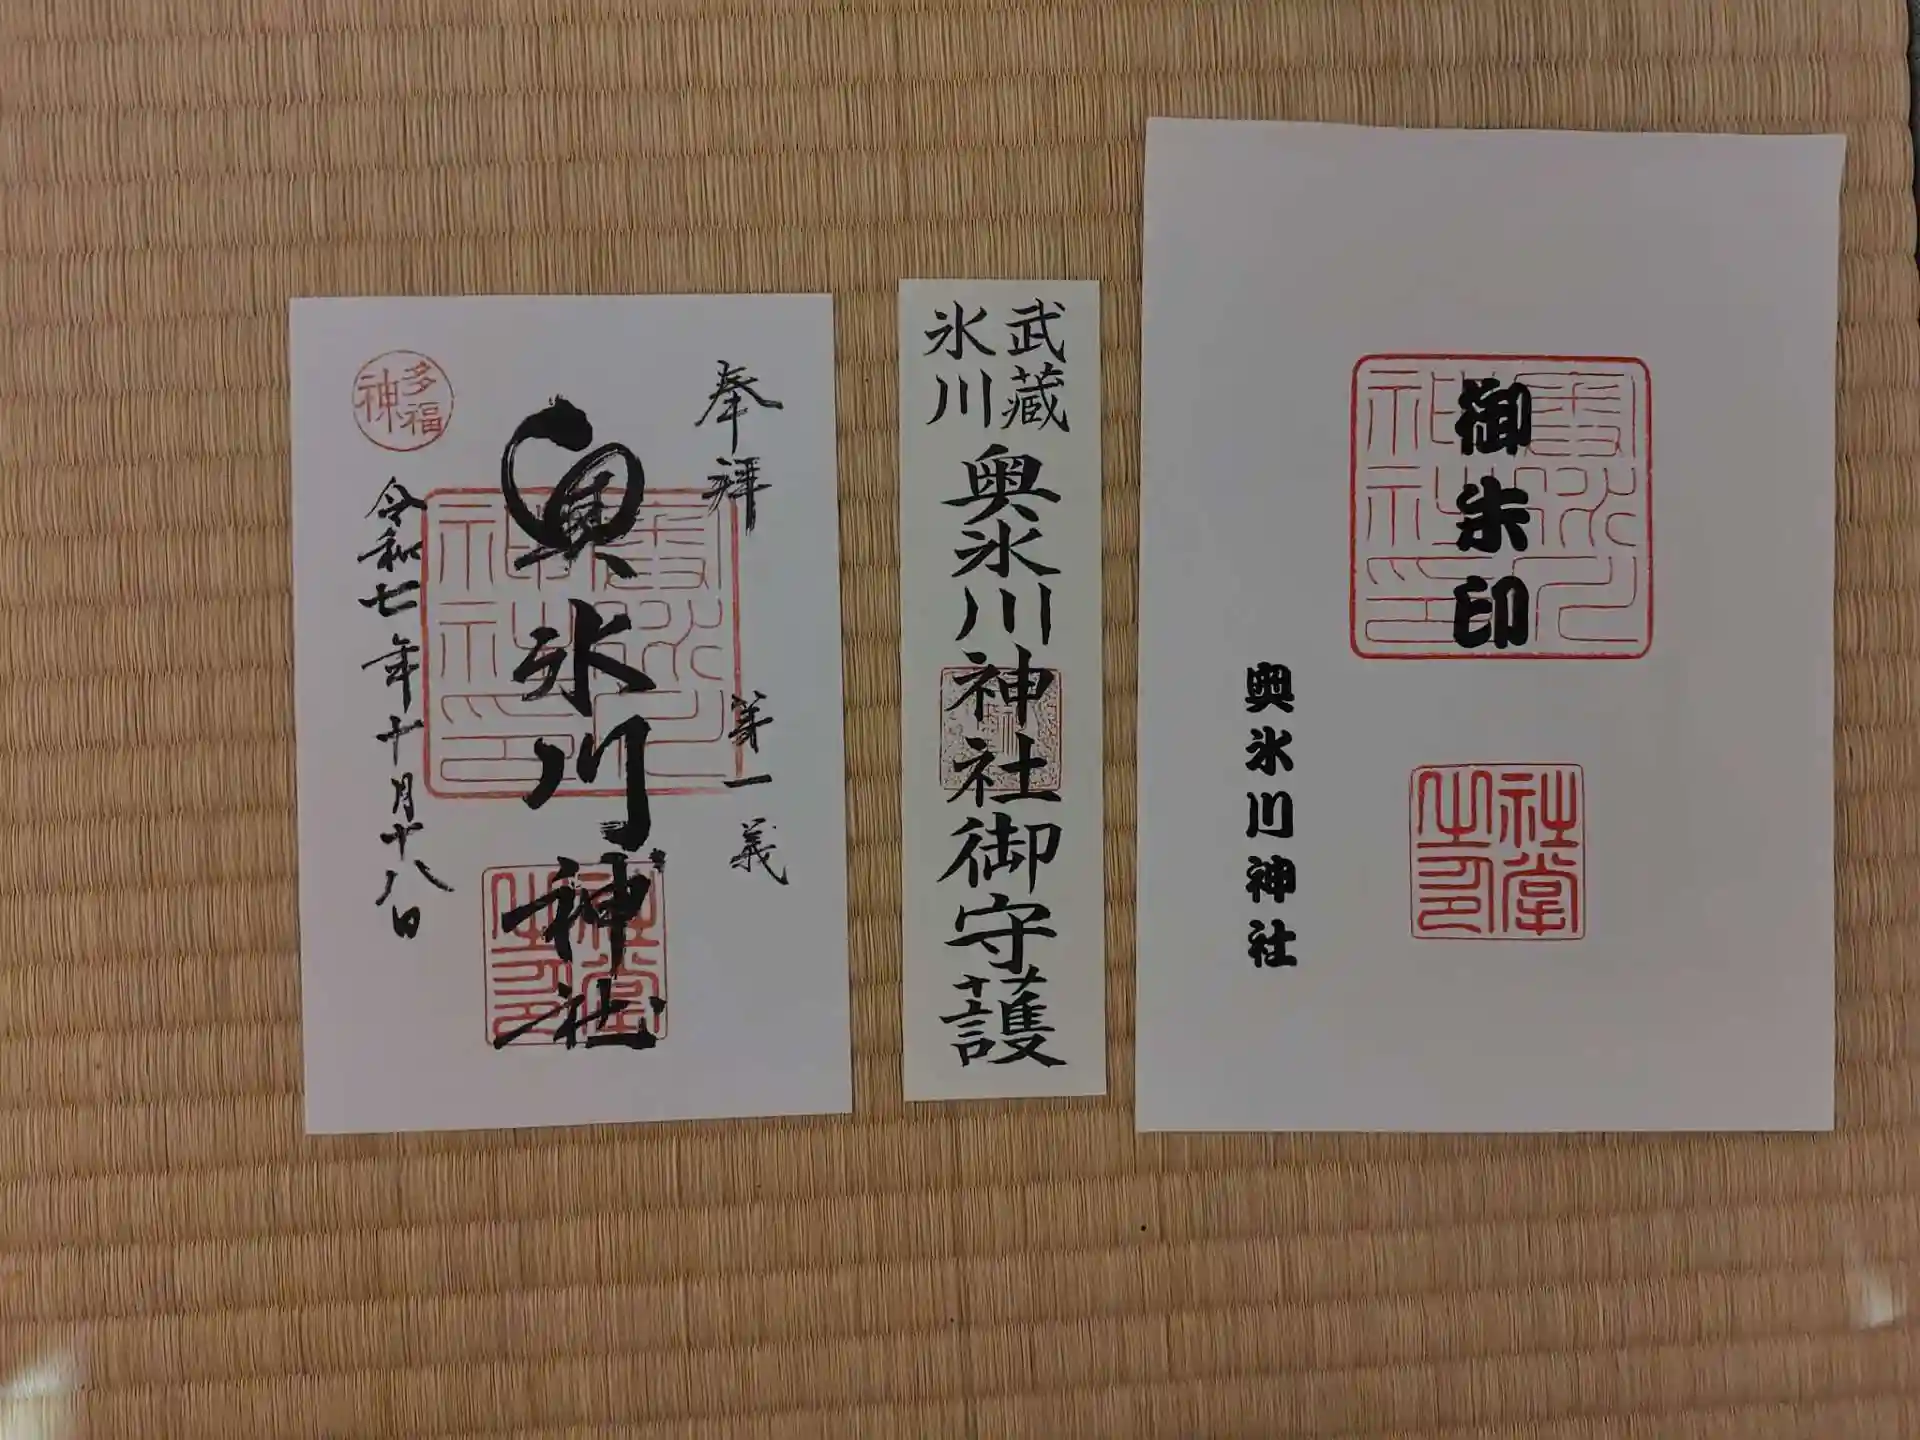 奉拝
第一義
奥氷川神社
多福
神
令和七年十月十八日
武蔵
氷川
奥氷川神社御守護
御朱印
奥氷川神社
奥氷川
神社印
社掌
之印